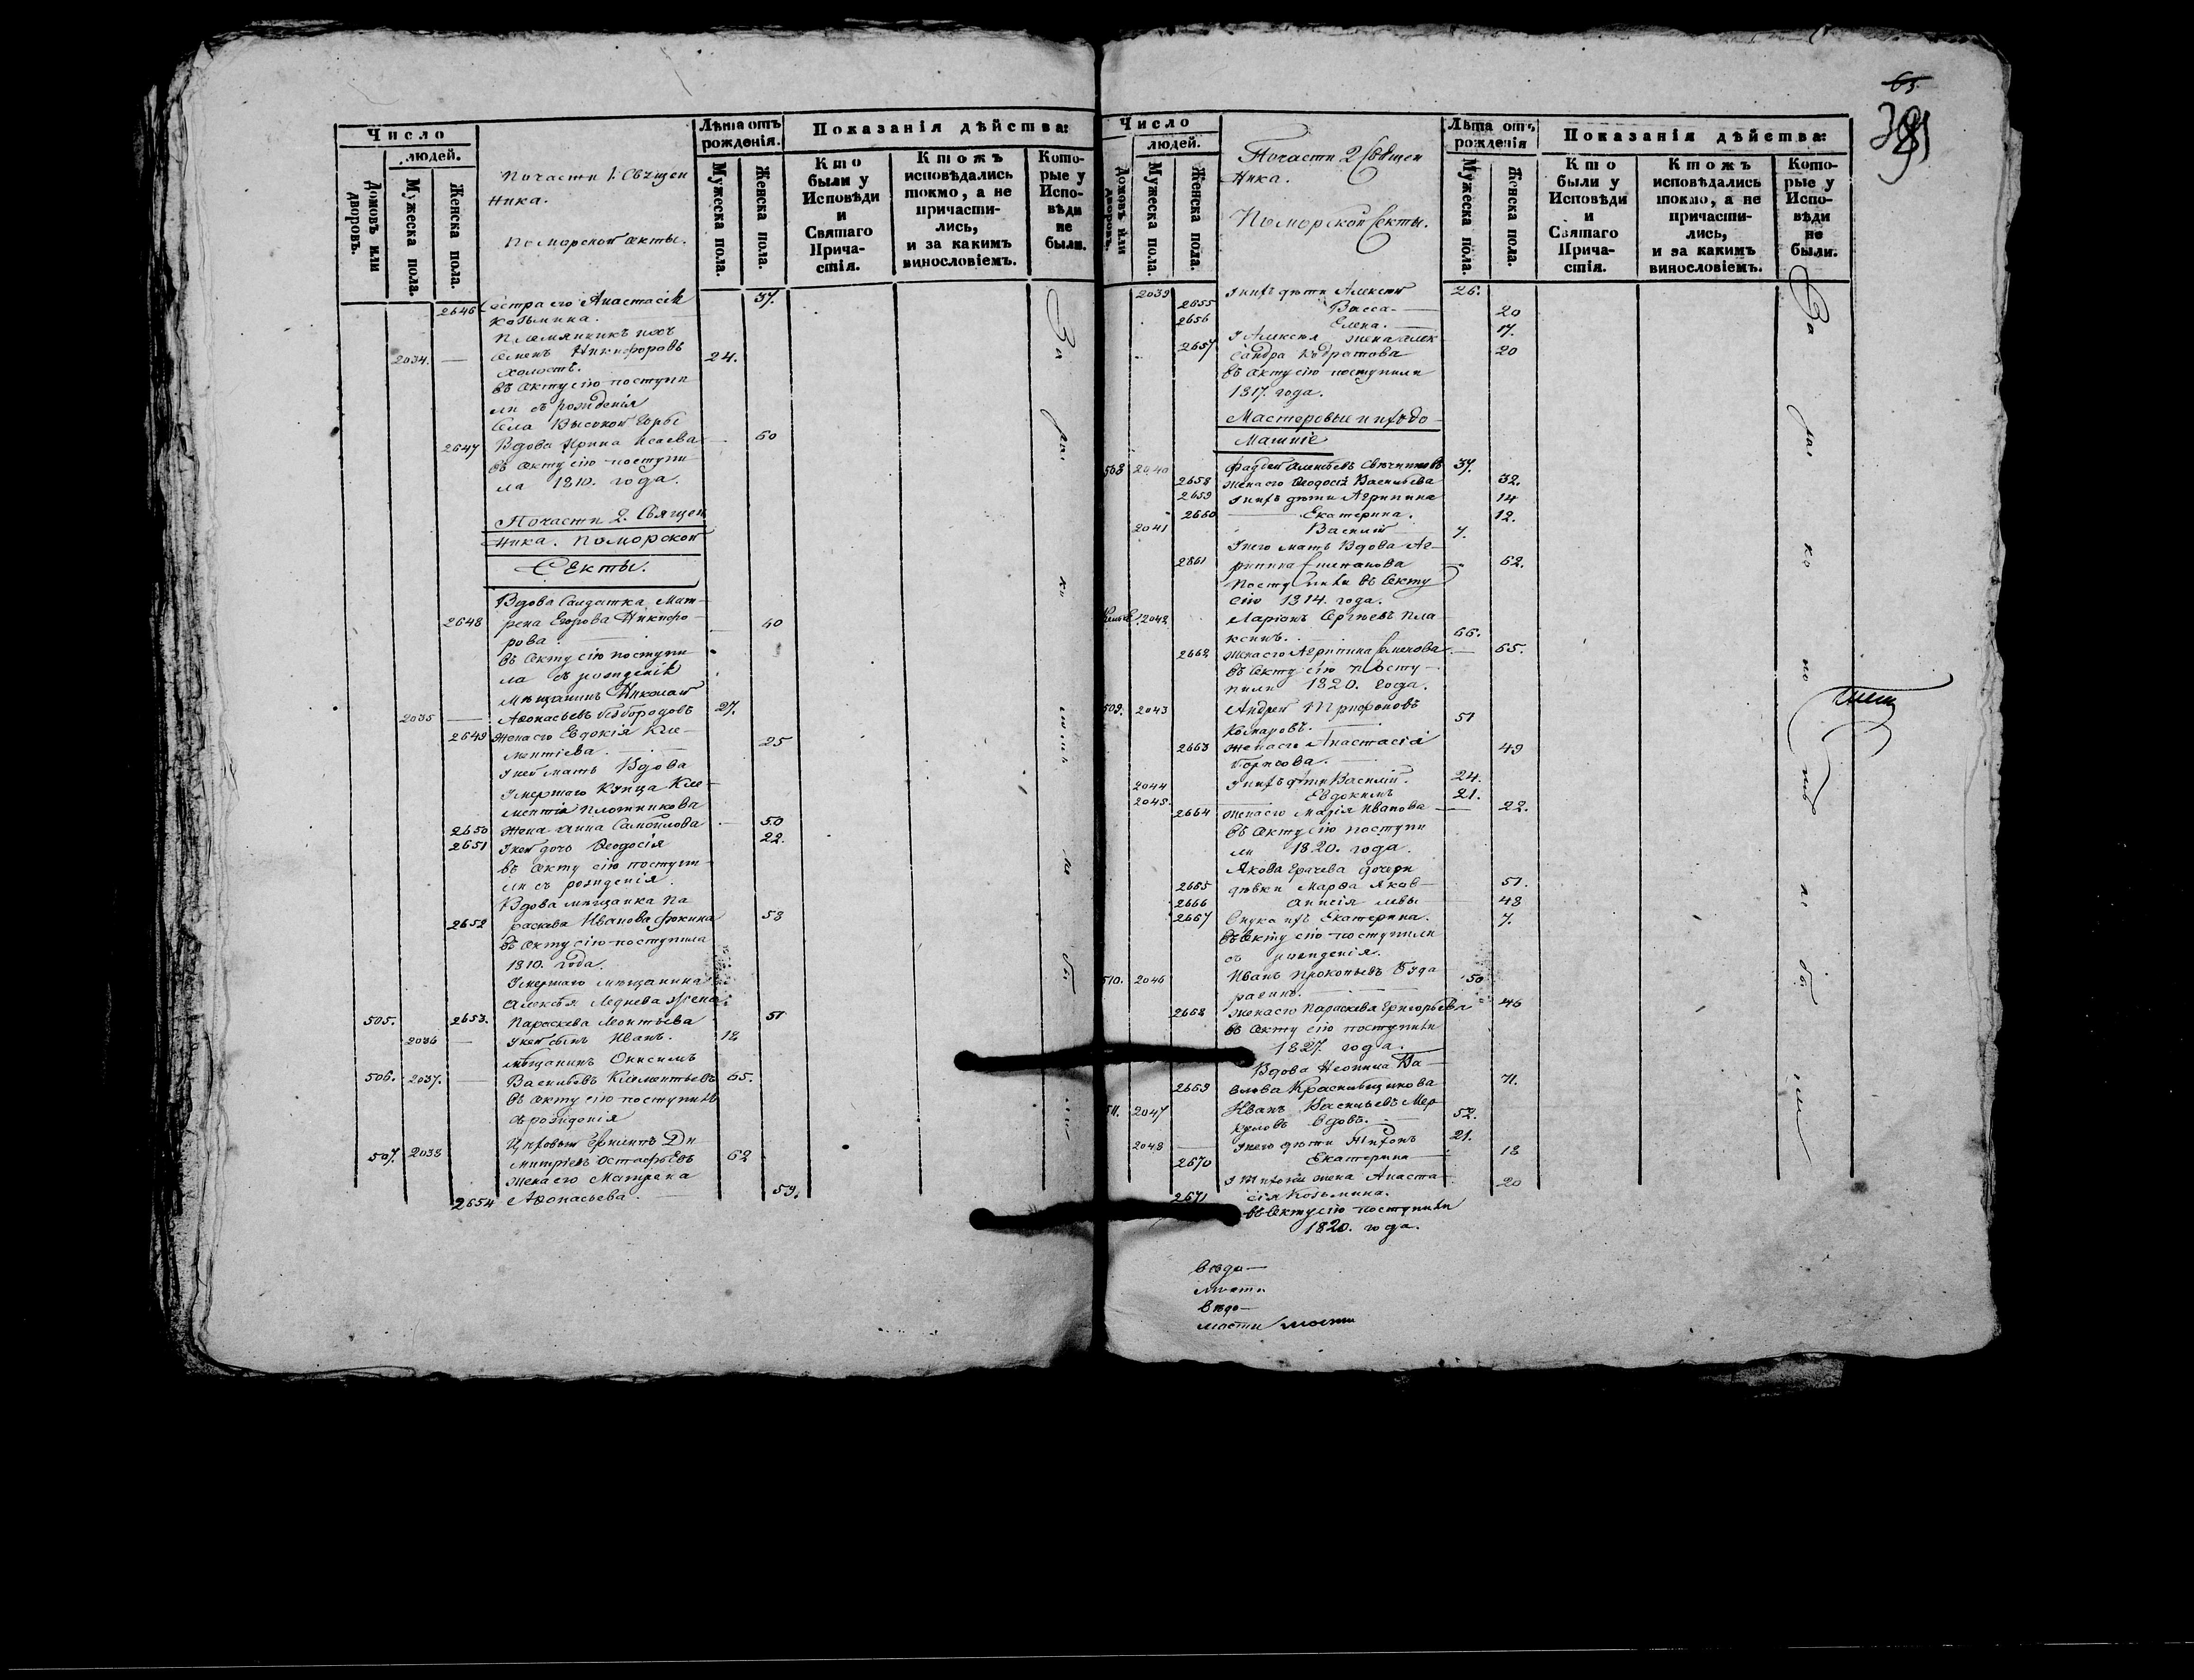 Число
людей.
Домовъ или дворовъ.
Мужеска пола.
Женска пола.
По части 1. Священ
ника.
Поморской секты.
Лѣта отъ рожденія.
Мужеска пола.
Женска пола.
Показанія дѣйства:
Кто были у Исповѣди и Святаго Прича-стія.
Ктожъ исповѣдались токмо, а не причасти-лись, и за какимъ винословіемъ.
Кото-рые у Испо-вѣди не были.
2646 Сестра его Анастасія 37.
Козьмина.
Племянникъ ихъ
2034. — Семенъ Никифоровъ 24.
холостъ.
въ секту сію поступи
ли съ рожденія
Села Высокой Горы
2647 Вдова Ирина Исаева — 60
въ секту сію поступи
ла 1810. года.
По части 2. Священ
ника. Поморской
Секты.
Вдова Солдатка Мат-
2648 рена Егорова Никифо- 40
рова.
въ секту сію поступи
ла съ рожденія
Мѣщанинъ Николай
2035 — Аѳонасьевъ Безбородовъ 27.
2649 жена его Евдокія Кле- 25
ментіева.
У ней мать Вдова
Умершаго Купца Кле-
ментія Плотникова
2650 жена Анна Самойлова — 50
2651 У ней дочь Ѳеодосія 22.
въ секту сію поступи
ли съ рожденія.
Вдова мѣщанка Па
2652 раскева Иванова 53
въ секту сію поступила
1810. года.
Умершаго мѣщанина
Алексѣя Леднева жена
505. 2653. Параскева Леонтьева 51
2036 — У ней сынъ Иванъ. 18
мѣщанинъ Онисимъ
506. 2037. — Васильевъ Клементьевъ 65.
въ секту сію поступилъ
съ рожденія
Цеховый Ди
507. 2038 митріевъ Остафьевъ 62
жена его Матрена
2654 Аѳонасьева. 59.
За раско
не бы
Число
людей.
Домовъ или дворовъ.
Мужеска пола.
Женска пола.
По части 2 Священ
ника.
Поморской Секты.
Лѣта отъ рожденія
Мужеска пола.
Женска пола.
Показанія дѣйства:
Кто были у Исповѣди и Святаго Прича-стія.
Ктожъ исповѣдались токмо, а не причасти-лись, и за какимъ винословіемъ.
Кото-рые у Испо-вѣди не были.
2039 У нихъ дѣти Алексѣй 26.
2655 Васса — 20
2656 Елена. — 17.
У Алексѣя жена Алек
2657 сандра Кодратова 20
въ секту сію поступили
1817. года.
Мастеровыи и ихъ до-
машніе
508 2040 37.
2658 жена его Ѳеодосія Васильева 32.
2659 У нихъ дѣти Агрипина 14
2660 — Екатерина. 12.
2041 Василій — 7.
У него мать Вдова Аг-
2661 рипина Степанова 62.
Поступили въ Секту
сію 1814. года.
2042 Ларіонъ Сергѣевъ Пла
ксинъ. 66.
2662 жена его Агрипина Семенова — 65.
въ секту сію посту-
пили 1820. года.
509. 2043 Андрей Трифоновъ
Комаровъ. 51
2663 жена его Анастасія 49
Борисова.
2044 У нихъ дѣти Василій. 24.
2045. — Евдокимъ 21.
2664 жена его Марія Иванова — 22.
въ секту сію поступи
ли 1820. года.
Якова дочери
2665 дѣвки Марѳа Яков- 51.
2666 Анисія левы 48
2667 Внука ихъ Екатерина. 7.
въ секту сію поступили
съ рожденія.
510. 2046 Иванъ Прокопьевъ 50
2668 жена его Параскева Григорьева 46
въ секту сію поступили
1827. года.
Вдова
2669 Красильщикова 71.
511. 2047 Иванъ Васильевъ Мер
куловъ вдовъ. — 52.
2048 — У него дѣти Тихонъ 21.
2670 Екатерина — 18
У Тихона жена Анаста- 20
2671 сія Козьмина.
въ секту сію поступили
1820. года.
За раско
не бы
Вѣдо—
мости
Вѣдо—
мости мости